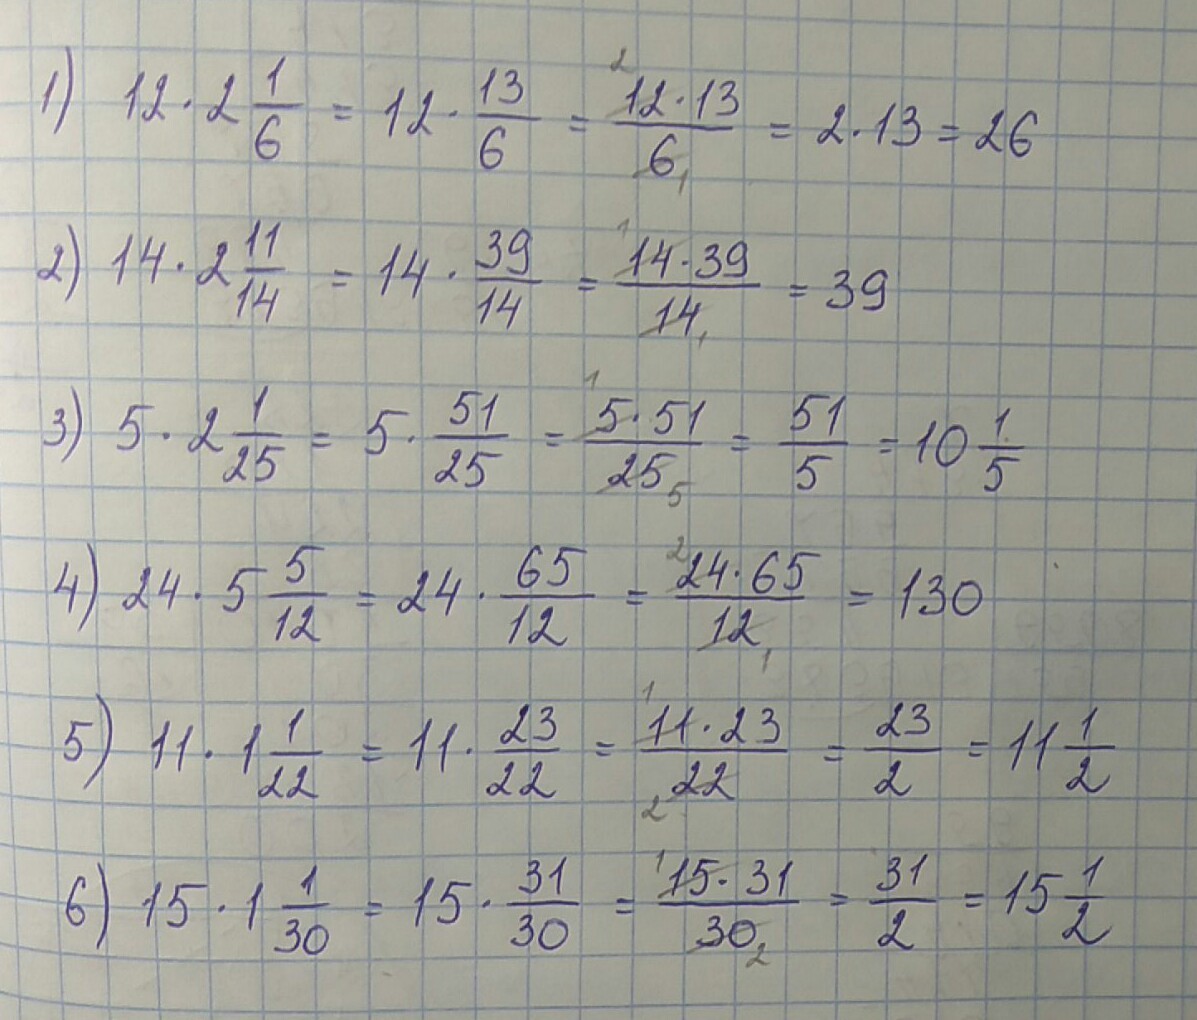 1) 12 · 2 1/6 = 12 · 13/6 = 12² · 13 / 6₁ = 2 · 13 = 26
2) 14 · 2 11/14 = 14 · 39/14 = 14¹ · 39 / 14₁ = 39
3) 5 · 2 1/25 = 5 · 51/25 = 5¹ · 51 / 25₅ = 51/5 = 10 1/5
4) 24 · 5 5/12 = 24 · 65/12 = 24² · 65 / 12₁ = 130
5) 11 · 1 1/22 = 11 · 23/22 = 11¹ · 23 / 22₂ = 23/2 = 11 1/2
6) 15 · 1 1/30 = 15 · 31/30 = 15¹ · 31 / 30₂ = 31/2 = 15 1/2